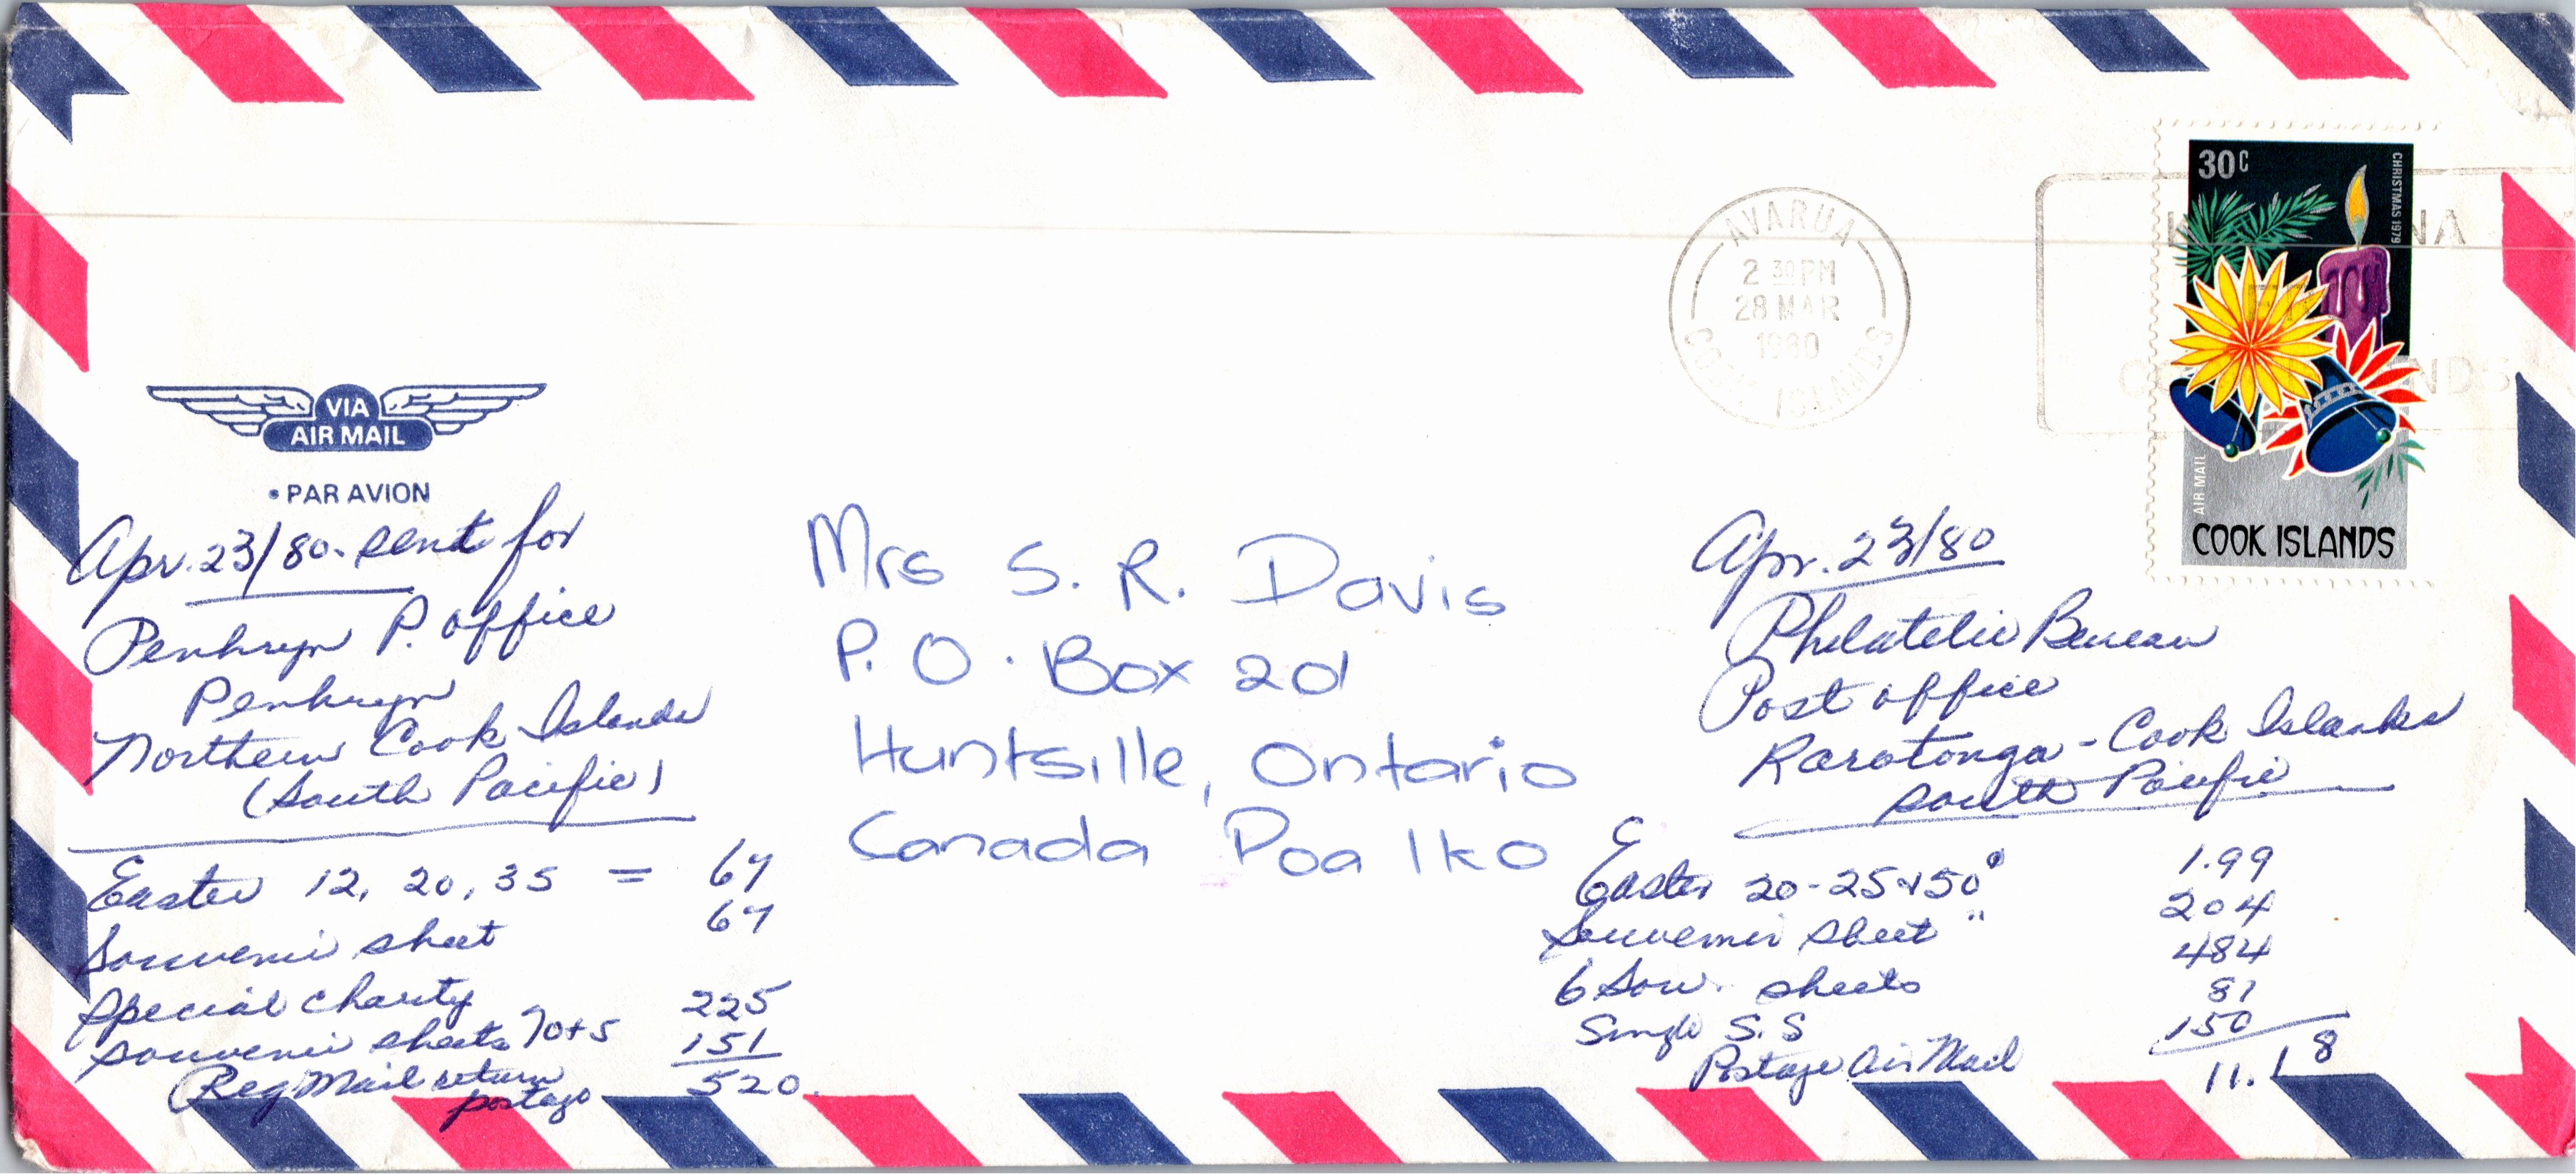 VIA
AIR MAIL
• PAR AVION
Apr. 23/80. sent for
Penhryn P. office
Penhryn
Northern Cook Islands
(South Pacific)
Easter 12, 20, 35 = 67
Souvenir sheet 67
Special charity
Souvenir sheets 70+5 225
Reg Mail return 151
postage 520.
Mrs S. R. Davis
P. O. Box 20
Huntsille, Ontario
Canada Poa 1ko
AVARUA
2 30 PM
28 MAR
1980
COOK ISLANDS
30c
CHRISTMAS 1979
AIR MAIL
COOK ISLANDS
Apr. 23/80
Philatelic Bureau
Post office
Rarotonga - Cook Islands
South Pacific
Easter 20-25+50 1.99
Souvenir sheet " 204
6 Sou. sheets 484
Single S.S 81
Postage Air Mail 150
11.18